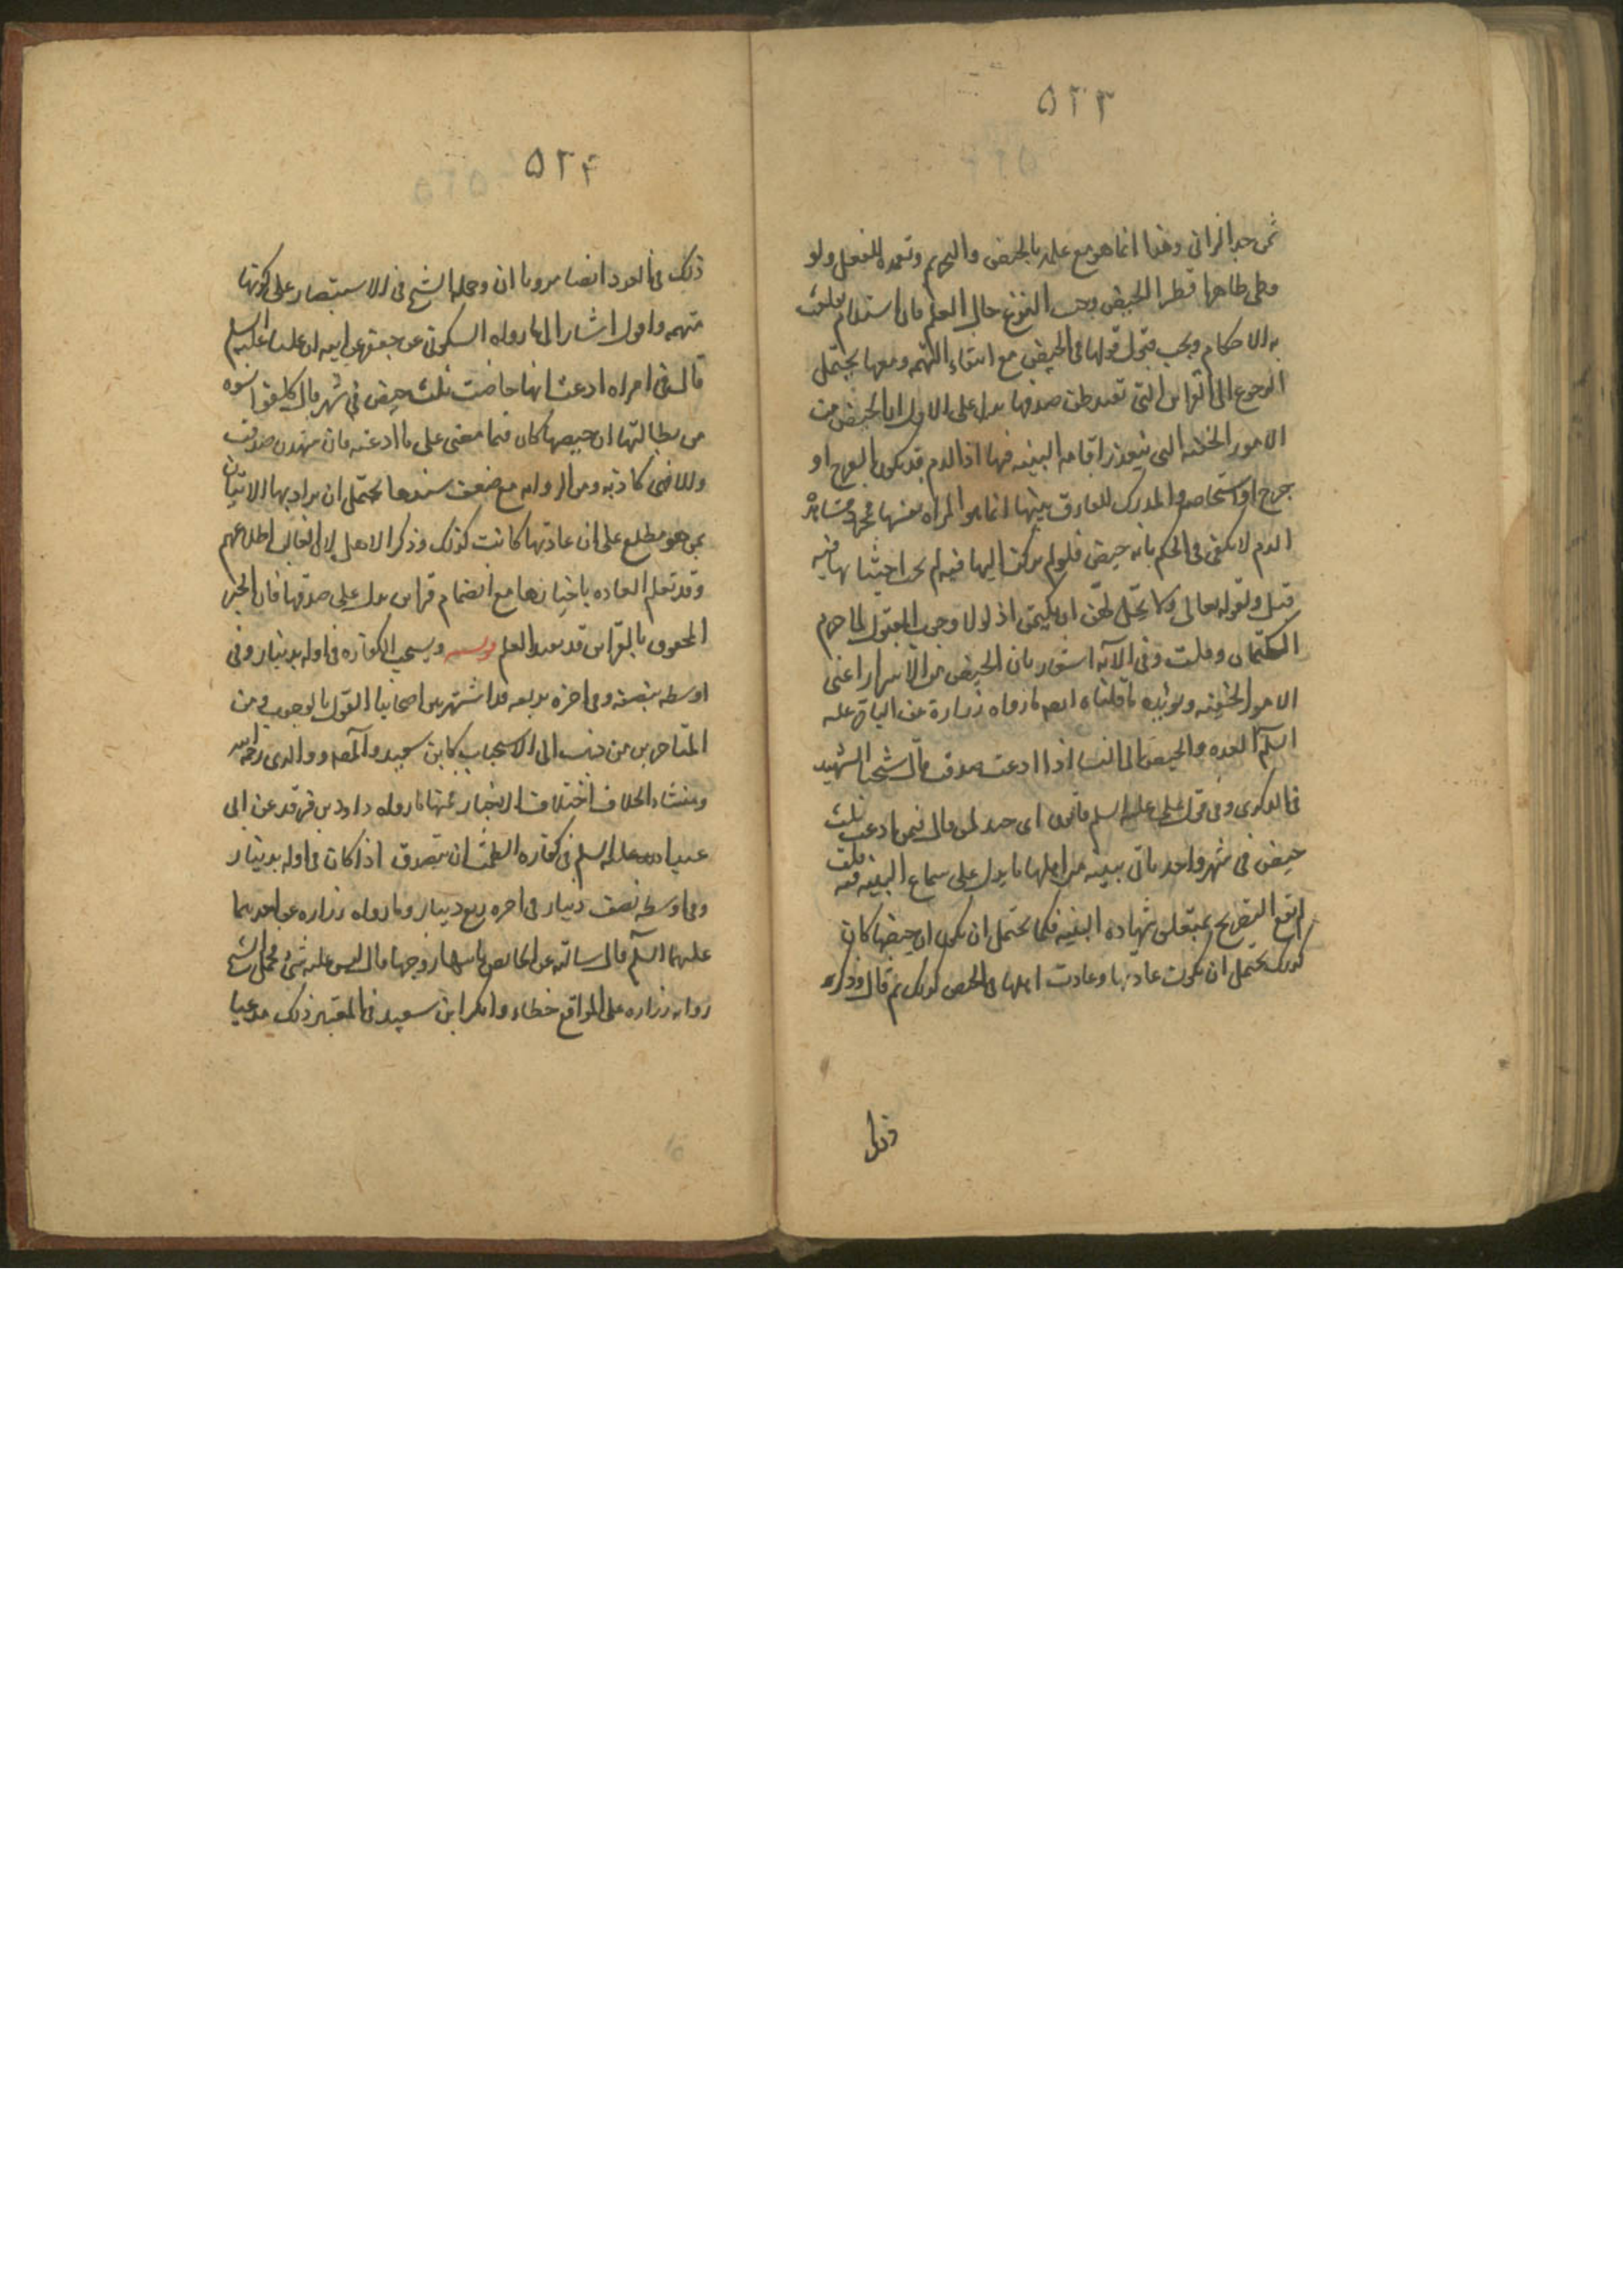 ۵۲۳
ثمن حد الزانی وهذا انما هو مع علمه بالحیض والتحریم وتعمده للفعل ولو
وطی طاهرا فطرا الحیض وجب النزع حال العلم فان استدام تعلقت
به الاحکام ویجب قبول قولها فی الحیض مع انتفاء التهمه ومعها یحتمل
الرجوع الی القراین التی تفید ظن صدقها یدل علی الاول ان الحیض من
الامور الخفیه التی یتعذر اقامه البینه فیها اذ الدم قد یکون لقرح او
جرح او استحاضه والمدرک للفارق بینها انما هو المراه نفسها فمجرد مشاهده
الدم لا یکفی فی الحکم بانه حیض فلو لم یرکن الیها فیه لم یجز اجتنابها فیه
قیل ولقوله تعالی ولا یحل لهن ان یکتمن اذ لولا وجوب القبول لما حرم
الکتمان وقلت وفی الآیه اشعار بان الحیض من الاسرار اعنی
الامور الخفیه ویؤیده ما قلناه ایضا ما رواه زرارة عن الباقر علیه
السلم العده والحیض الی النساء اذا ادعت صدقت قال شیخنا الشهید
فی الذکری وفی قول علی علیه السلم قالون ای جید لمن قال فیمن ادعت ثلث
حیض فی شهر واحد یاتی ببینه من اهلها ما یدل علی سماع البینه فیه قلت
لم یقع التصریح بمتعلق شهاده البینه فکما یحتمل ان یکون ان حیضها کان
کذلک یحتمل ان یکون عادتها وعادت اهلها فی الحیض کذلک ثم قال وذکر
ذلک
۵۲۴
ذلک فی العدد ایضا مرویا ان وحمله الشیخ فی الاستبصار علی کونها
متهمه واقول اشار الی ما رواه السکونی عن جعفر عن ابیه ان علیا علیه السلم
قال فی امراه ادعت انها حاضت ثلث حیض فی شهر قال کلفوا نسوه
من بطانتها ان حیضها کان فیما مضی علی ما ادعته فان شهدن صدقت
والا فهی کاذبه ومن الروایه مع ضعف سندها یحتمل ان یراد بها الاتیان
بمن هو مطلع علی ان عادتها کانت کذلک وذکر الاهل لان الغالب اطلاعهم
وقد تعلم العاده باخبارها مع انضمام قراین یدل علی صدقها فان الخبر
المحفوف بالقراین قد یفید العلم ویستحب الکفاره فی اوله بدینار وفی
اوسطه بنصفه وفی اخره بربعه قد اشتهر بین اصحابنا القول بالوجوب ومن
المتاخرین من ذهب الی الاستحباب کابن سعید والمصه ووالدی رحمه الله
ومنشاء الخلاف اختلاف الاخبار فمنها ما رواه داود بن فرقد عن ابی
عبد الله علیه السلم فی کفاره الطمث ان یتصدق اذا کان فی اوله بدینار
وفی اوسطه نصف دینار فی اخره ربع دینار وما رواه زراره عن احدهما
علیهما السلم قال سالته عن الحایض یاتیها زوجها قال لیس علیه شیء فحمل الشیخ
روایه زراره علی المواقع خطاء وانکر ابن سعید فی المعتبر ذلک مدعیا